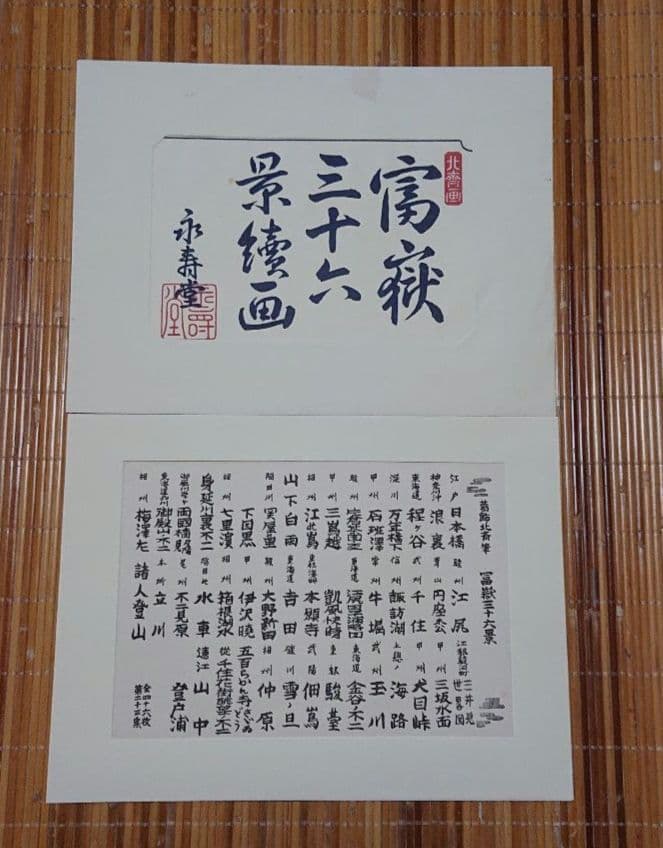 北斎画
富嶽
三十六
景續画
永寿堂
葛飾北斎筆 冨嶽三十六景
江戸日本橋 駿州江尻 江都駿河町三井見世略図
神奈川沖浪裏 青山円座枩 甲州三坂水面
東海道程ヶ谷 武州千住 甲州犬目峠
深川万年橋下 信州諏訪湖 上総ノ海路
甲州石班澤 常州牛堀 武州玉川
駿州 東海道 東海道金谷ノ不二
甲州三嶌越 凱風快晴 東都駿台
相州江の嶌 東都浅草本願寺 武陽佃嶌
山下白雨 東海道吉田 礫川雪ノ旦
隅田川関屋里 駿州大野新田 相州仲原
下目黒 甲州伊沢暁 五百らかん寺さゞゐどう
相州七里濱 相州箱根湖水 従千住花街眺望ノ不二
身延川裏不二 隠田ノ水車 遠江山中
両國橋夕陽見 尾州不二見原 登戸浦
東海道品川御殿山ノ不二 本所立川
相州梅澤左 諸人登山
全四十六枚